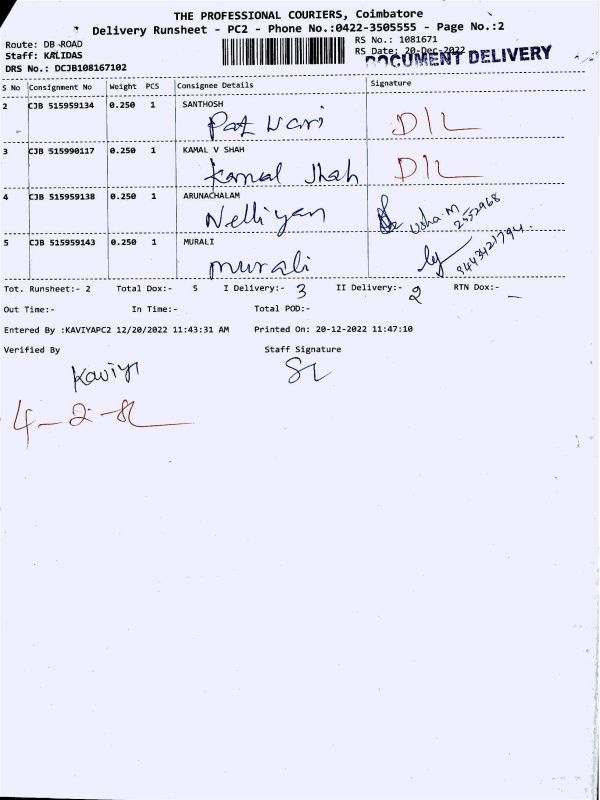 THE PROFESSIONAL COURIERS, Coimbatore
Delivery Runsheet - PC2 - Phone No.:0422-3505555 - Page No.:2
Route: DB ROAD RS No.: 1081671
Staff: KALIDAS RS Date: 20-Dec-2022
DOCUMENT DELIVERY
DRS No.: DCJB108167102
S No Consignment No Weight PCS Consignee Details Signature
2 CJB 515959134 0.250 1 SANTHOSH
Pat wari DIL
3 CJB 515990117 0.250 1 KAMAL V SHAH
Kamal Shah DIL
4 CJB 515959138 0.250 1 ARUNACHALAM
Nelliyan Usha.M
2552968
5 CJB 515959143 0.250 1 MURALI
murali 9443421794
Tot. Runsheet:- 2 Total Dox:- 5 I Delivery:- 3 II Delivery:- 2 RTN Dox:- -
Out Time:- In Time:- Total POD:-
Entered By :KAVIYAPC2 12/20/2022 11:43:31 AM Printed On: 20-12-2022 11:47:10
Verified By Staff Signature
Kaviya
4-2-